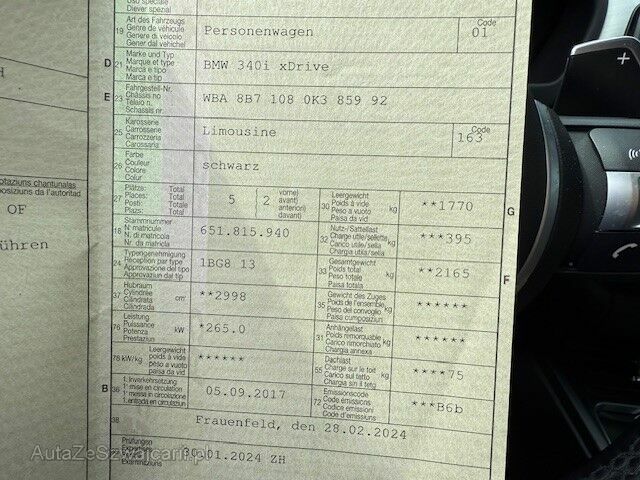 Uso speciale
Diever spezial
19 Art des Fahrzeugs
Genre de véhicule
Genere di veicolo
Gener dal vehichel
Personenwagen
Code
01
D 21 Marke und Typ
Marque et type
Marca e tipo
Marca e tip
BMW 340i xDrive
E 23 Fahrgestell-Nr.
Châssis no
Telaio n.
Schassis nr.
WBA 8B7 108 0K3 859 92
25 Karosserie
Carrosserie
Carrozzeria
Carossaria
Limousine
Code
163
26 Farbe
Couleur
Colore
Colur
schwarz
27 Plätze: Total
Places: Total
Posti: Totale
Plazs: Total
5 ( 2 vorne)
avant)
anteriori)
davant)
30 Leergewicht
Poids à vide
Peso a vuoto
Paisa da vid
kg
**1770
G
18 Stammnummer
N° matricule
N. di matricola
Nr. da matricla
651.815.940
32 Nutz-/Sattellast
Charge utile/sellette
Carico utile/sella
Chargia utila/sella
kg
***395
24 Typengenehmigung
Réception par type
Approvazione del tipo
Approvaziun dal tip
1BG8 13
33 Gesamtgewicht
Poids total
Peso totale
Paisa totala
kg
**2165
F
37 Hubraum
Cylindrée
Cilindrata
Cilindrada
cm³
**2998
35 Gewicht des Zuges
Poids de l'ensemble
Peso del convoglio
Paisa cumposiziun
kg
******
76 Leistung
Puissance
Potenza
Prestaziun
kW
*265.0
31 Anhängelast
Poids remorquable
Carico rimorchiato
Chargia annexa
kg
******
78 kW/kg Leergewicht
poids à vide
peso a vuoto
paisa da vid
******
55 Dachlast
Charge sur le toit
Carico sul tetto
Chargia sin il tetg
kg
****75
B 36 1. Inverkehrsetzung
1re mise en circulation
1a messa in circolazione
1. entrada en circulaziun
05.09.2017
72 Emissionscode
Code émissions
Codice emissioni
Code d'emissiuns
***B6b
38 Frauenfeld, den 28.02.2024
Prüfungen
Examinaziuns
30.01.2024 ZH
H
notaziuns chantunalas
posiziuns da l'autoritad
OF
ühren
AutaZeSzwajcarii.pl